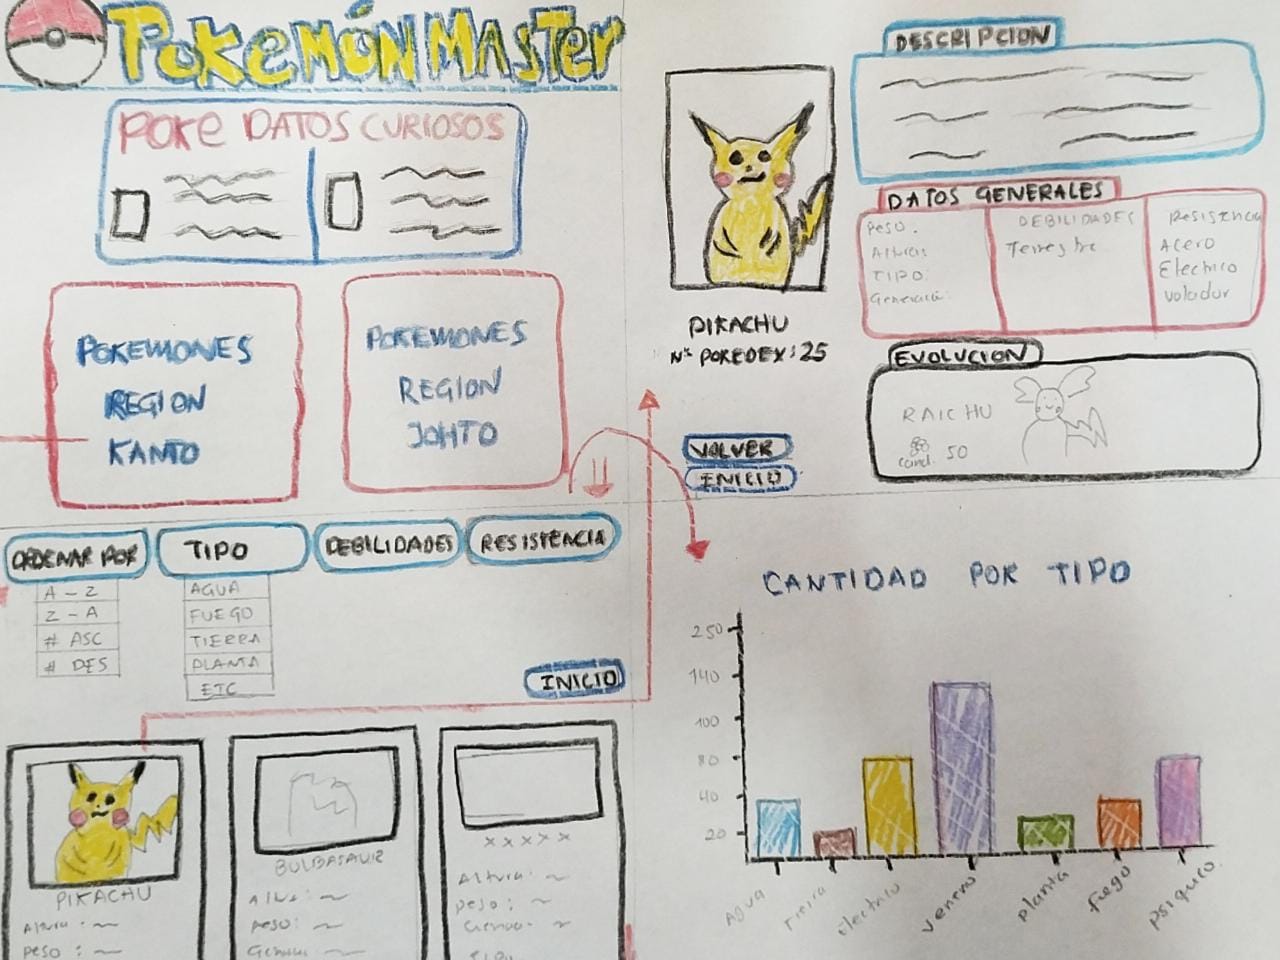 POKEMÓN MASTER
POKE DATOS CURIOSOS
POKEMONES
REGION
KANTO
POKEMONES
REGION
JOHTO
PIKACHU
Nº POKEDEX: 25
VOLVER
INICIO
DESCRIPCION
DATOS GENERALES
PESO.
Altura:
TIPO:
Generació:
DEBILIDADES
Terrestre
Resistencia
Acero
Electrico
volador
EVOLUCION
RAICHU
cand. 50
ORDENAR POR
A - Z
Z - A
# ASC
# DES
TIPO
AGUA
FUEGO
TIERRA
PLANTA
ETC
DEBILIDADES
RESISTENCIA
INICIO
PIKACHU
Altura:
PESO:
BULBASAUR
Altu:
peso:
xxxxx
Altura:
peso:
CANTIDAD POR TIPO
250
140
100
80
40
20
Agua
Tierra
Electrico
veneno
planta
fuego
psiquico.